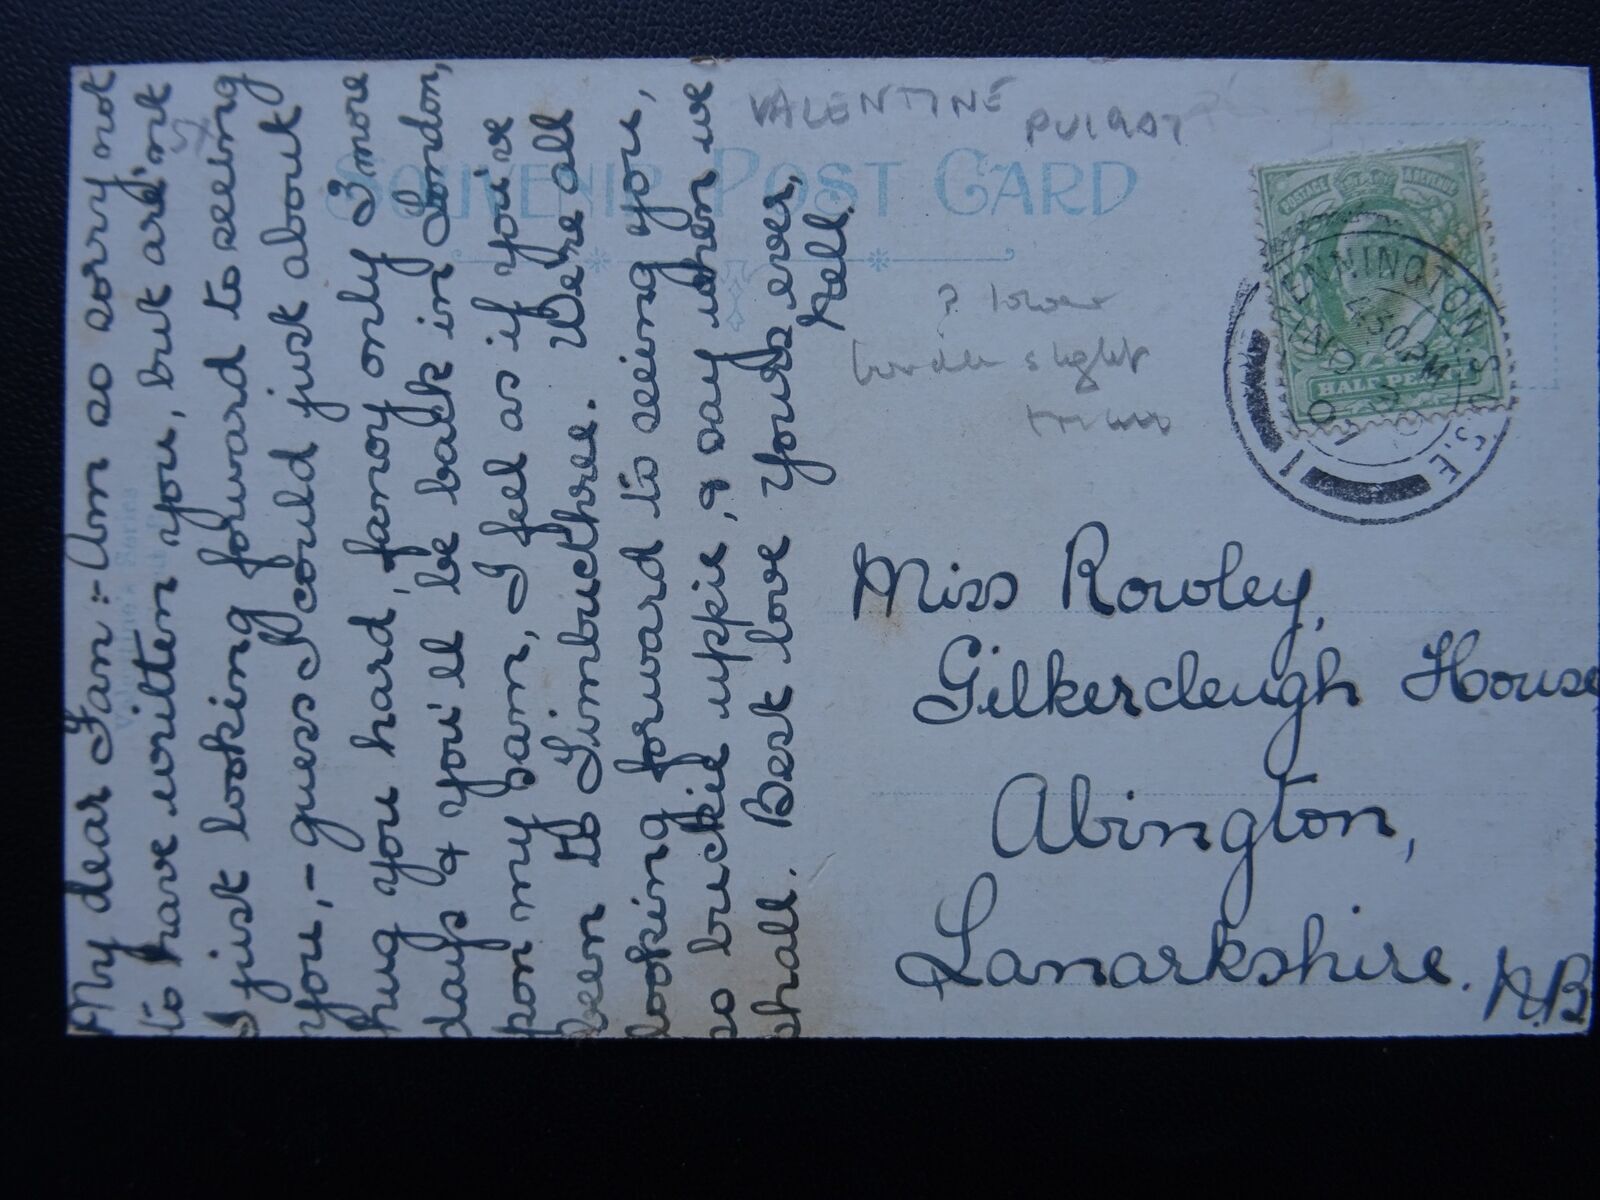 My dear Fan :- Am so sorry not
to have written you, but are'nt
I just looking forward to seeing
you, - guess I could just about
hug you hard, fancy only 3 more
days & you'll be back in London,
pon my sam, I feel as if you've
been to Timbucthre. We're all
looking forward to seeing you,
so buckie uppie, & say when we
shall. Best love yours ever,
Nell.
VALENTINE
PU1907
SOUVENIR POST CARD
? lower
border slight
POSTAGE REVENUE
HALF PENNY
KENNINGTON
S.E.
Miss Rowley,
Gilkercleugh House,
Abington,
Lanarkshire.
N.B.